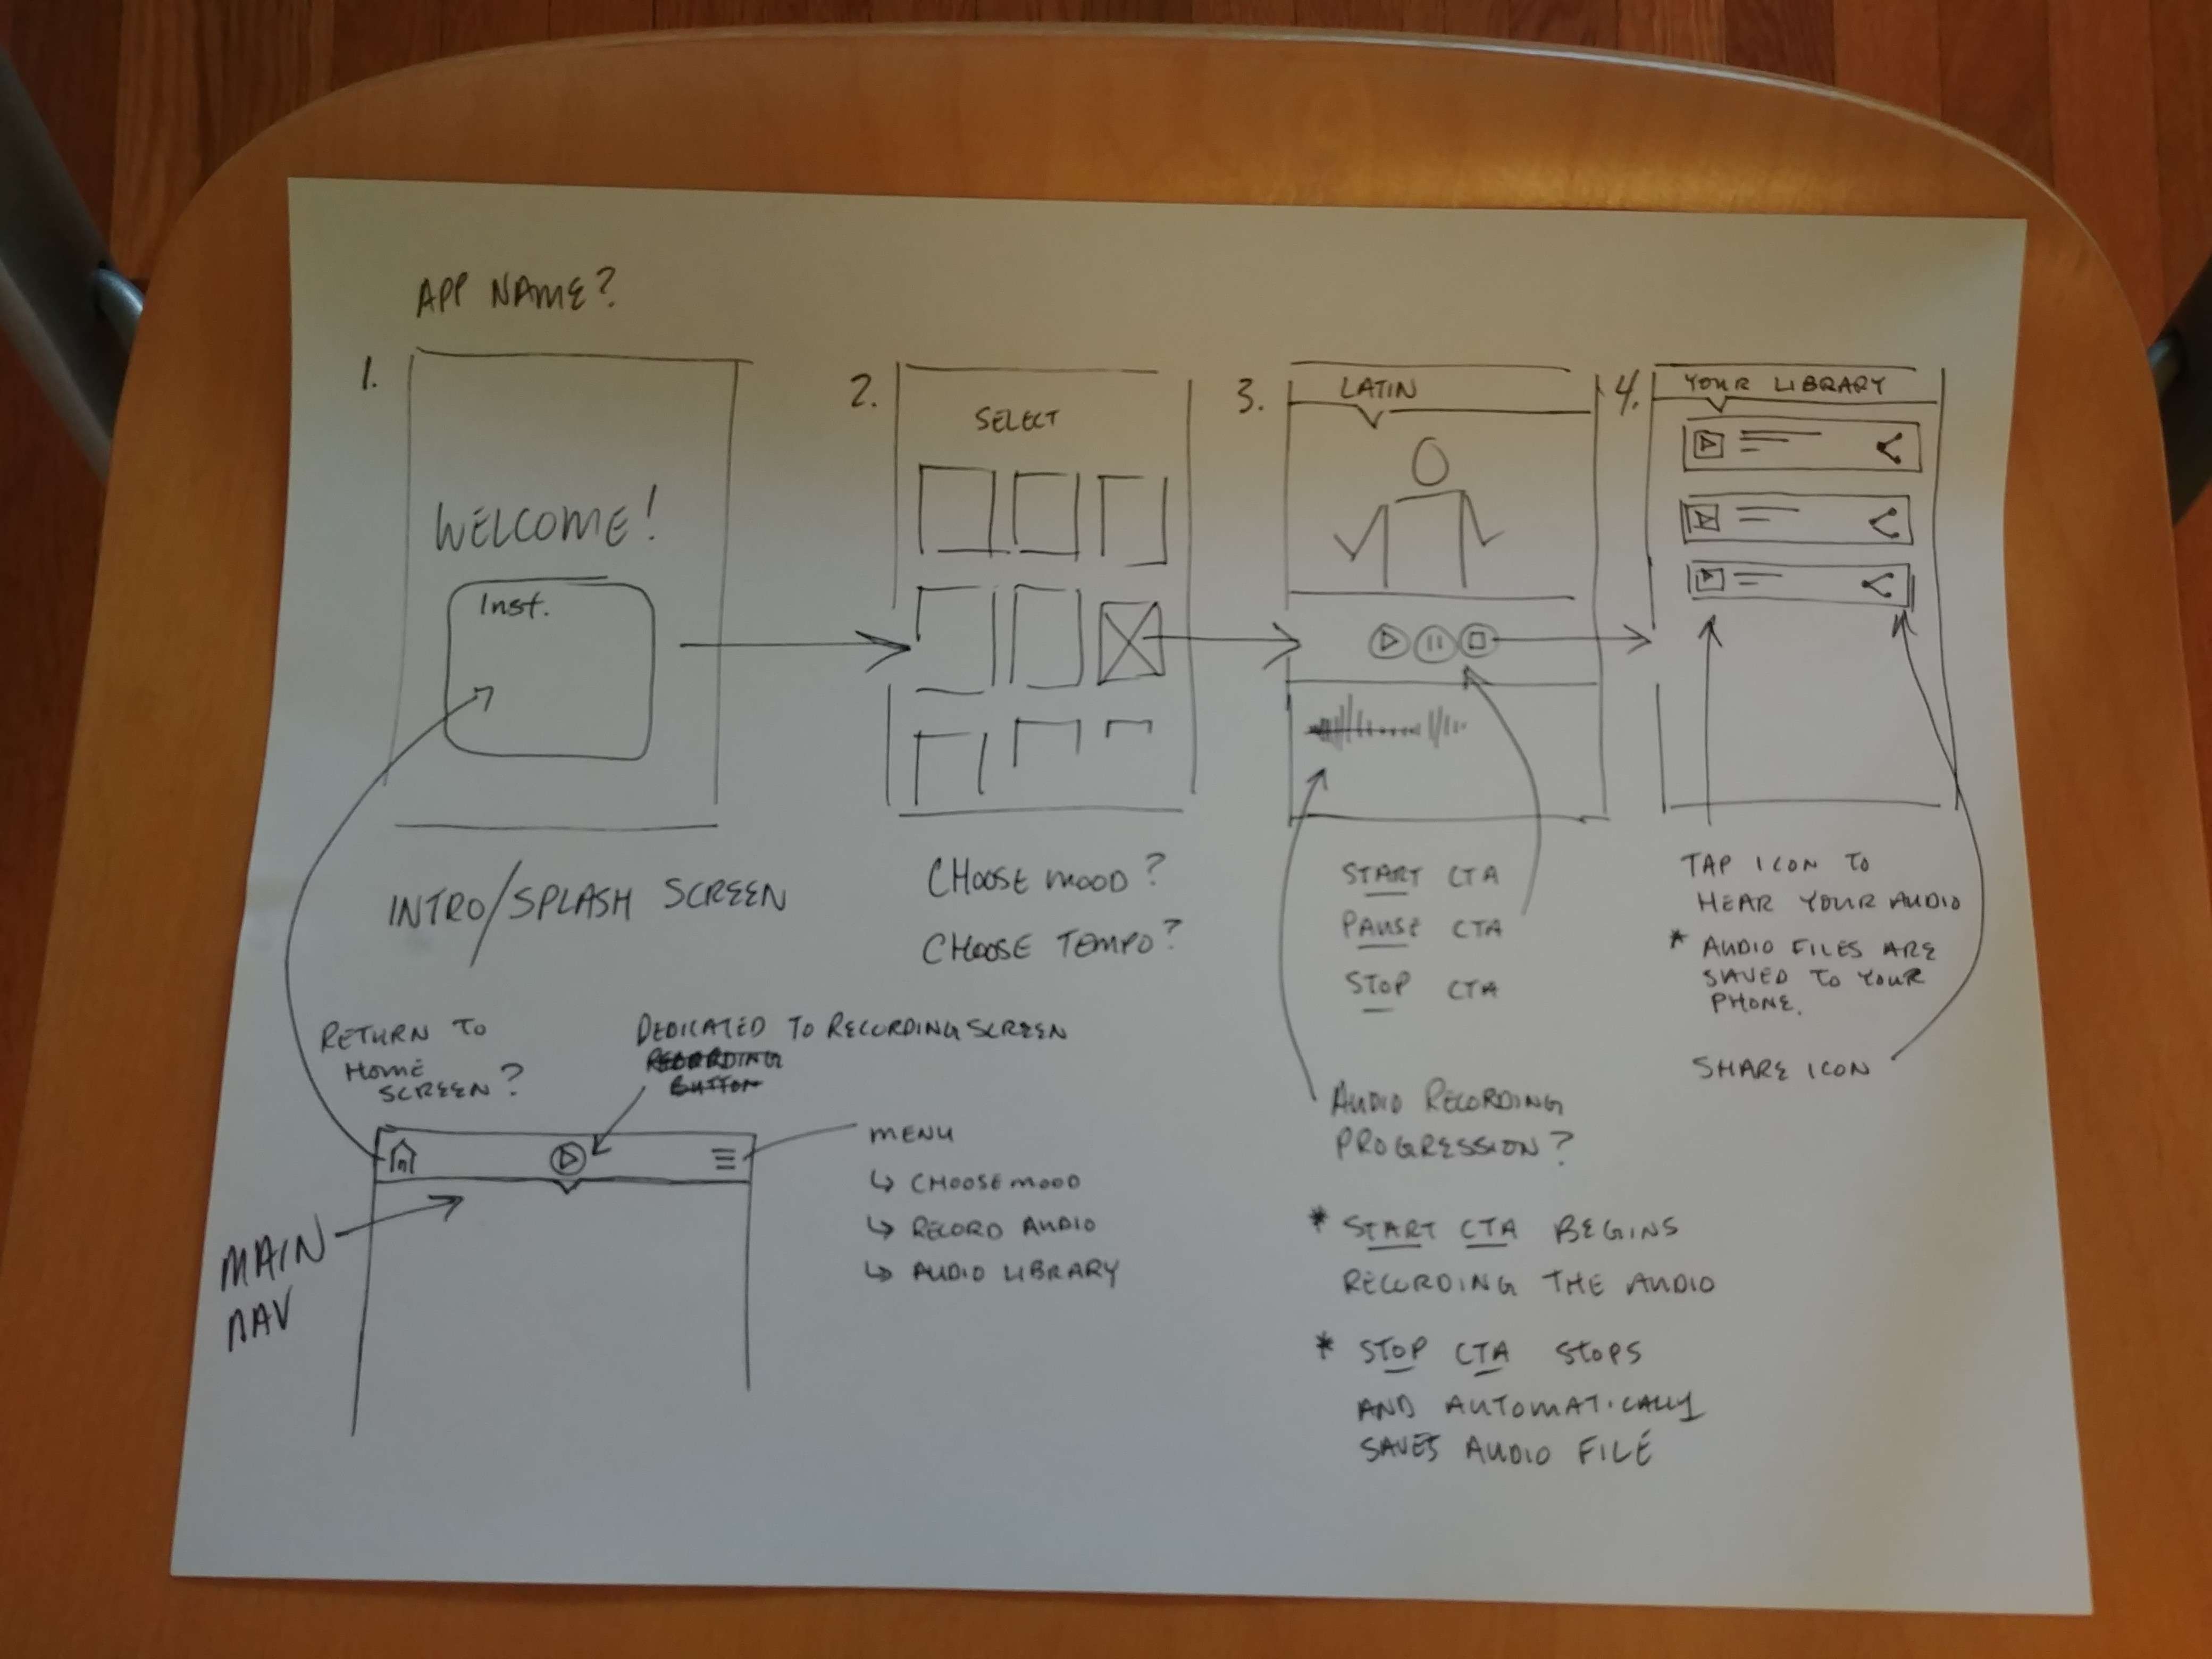 APP NAME?
1.
WELCOME!
Inst.
INTRO/SPLASH SCREEN
2.
SELECT
CHOOSE MOOD?
CHOOSE TEMPO?
3.
LATIN
START CTA
PAUSE CTA
STOP CTA
AUDIO RECORDING
PROGRESSION?
* START CTA BEGINS
RECORDING THE AUDIO
* STOP CTA STOPS
AND AUTOMATICALLY
SAVES AUDIO FILE
4.
YOUR LIBRARY
TAP ICON TO
HEAR YOUR AUDIO
* AUDIO FILES ARE
SAVED TO YOUR
PHONE.
SHARE ICON
RETURN TO
HOME
SCREEN?
DEDICATED TO RECORDING SCREEN
RECORDING
BUTTON
MENU
↳ CHOOSE MOOD
↳ RECORD AUDIO
↳ AUDIO LIBRARY
MAIN
NAV